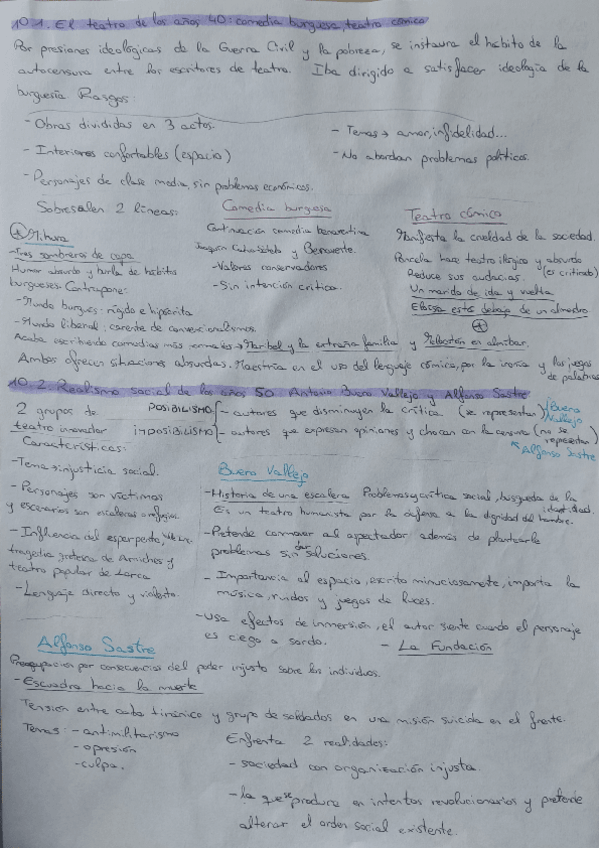 10.1. El teatro de los años 40: comedia burguesa, teatro cómico
Por presiones ideológicas de la Guerra Civil y la pobreza, se instaura el hábito de la
autocensura entre los escritores de teatro. Iba dirigido a satisfacer ideología de la
burguesía Rasgos:
- Obras divididas en 3 actos.
- Temas → amor, infidelidad...
- Interiores confortables (espacio)
- No abordan problemas políticos.
- Personajes de clase media, sin problemas económicos.
Sobresalen 2 líneas:
Comedia burguesa
Continuación comedia benaventina
Joaquín Calvo Sotelo y Benavente.
- Valores conservadores
- Sin intención crítica.
Teatro cómico
Manifiesta la crueldad de la sociedad.
Poncela hace teatro ilógico y absurdo
Reduce sus audacias. (es criticado)
Un marido de ida y vuelta
Eloísa está debajo de un almendro
Mihura
- Tres sombreros de copa
Humor absurdo y burla de hábitos
burgueses. Contrapone:
- Mundo burgues: rígido e hipócrita
- Mundo liberal: carente de convencionalismos.
Acaba escribiendo comedias más → Maribel y la extraña familia y Melocotón en almíbar.
Ambos ofrecen situaciones absurdas. Maestría en el uso del lenguaje cómico, por la ironía y los juegos
de palabras
10.2. Realismo social de los años 50. Antonio Buero Vallejo y Alfonso Sastre
2 grupos de
teatro innovador
POSIBILISMO - autores que disminuyen la crítica (se representan) Buero Vallejo
IMPOSIBILISMO - autores que expresan opiniones y chocan con la censura (no se representan)
Alfonso Sastre
Características:
- Tema → injusticia social.
- Personajes son víctimas
y escenarios son escaleras o
- Influencia del esperpento,
tragedia grotesca de Arniches y
teatro popular de Lorca
- Lenguaje directo y
Buero Vallejo
- Historia de una escalera Problemas y crítica social, búsqueda de la identidad.
Es un teatro humanista por la defensa a la dignidad del hombre.
- Pretende conmover al espectador además de plantearle
problemas sin dar soluciones.
- Importancia al espacio, escrito minuciosamente, importa la
música, ruidos y juegos de luces.
- Usa efectos de inmersión, el autor siente cuando el personaje
es ciego o sordo.
- La Fundación
Alfonso Sastre
Preocupación por consecuencias del poder injusto sobre los individuos.
- Escuadra hacia la muerte
Tensión entre cabo tiránico y grupo de soldados en una misión suicida en el frente.
Temas: - antimilitarismo
- opresión
- culpa.
Enfrenta 2 realidades:
- sociedad con organización injusta.
- la que se produce en intentos revolucionarios y pretende
alterar el orden social existente.